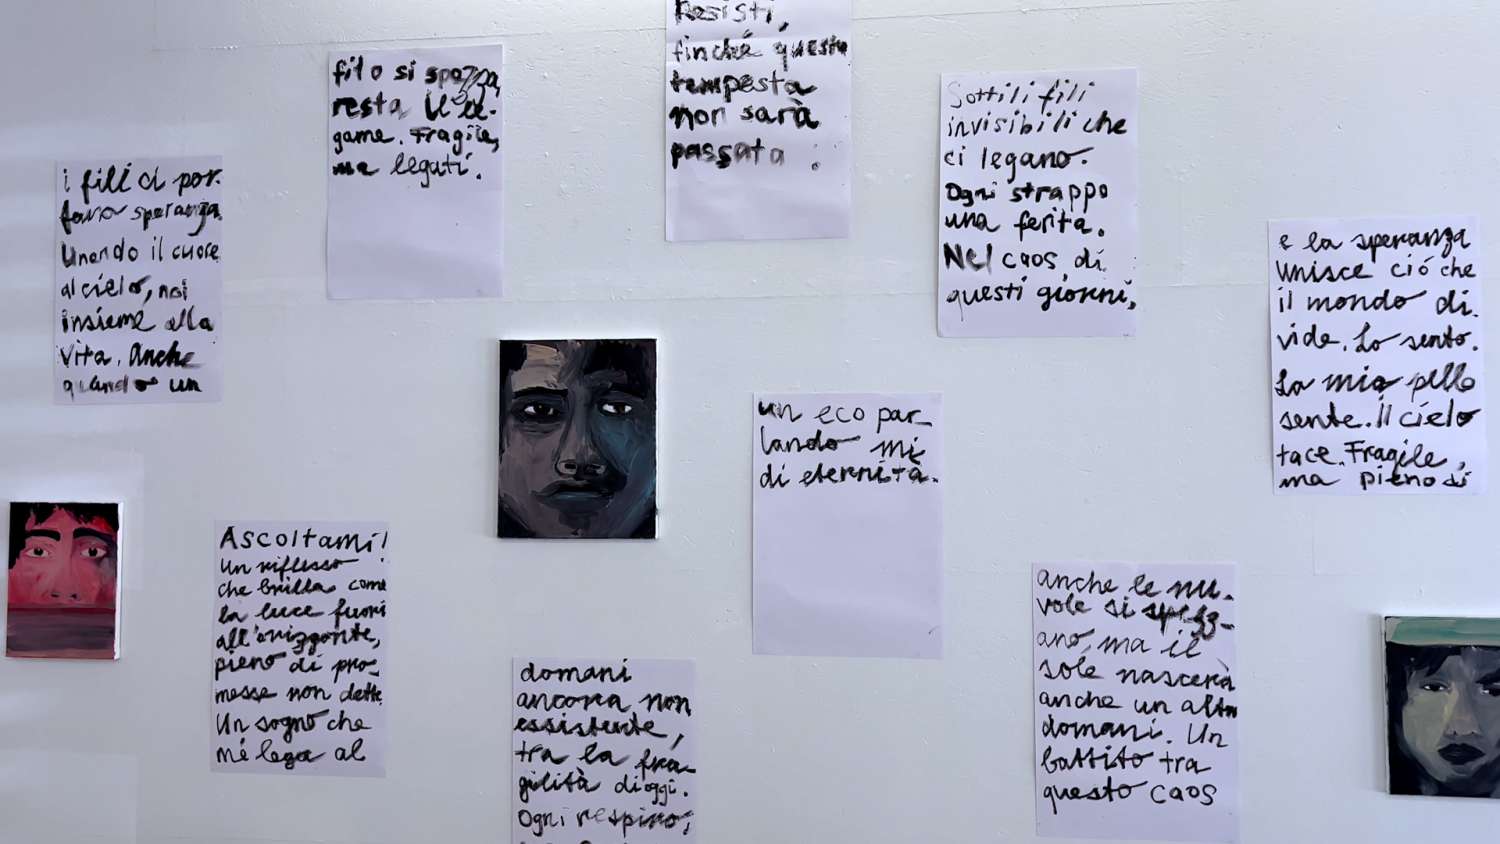 i fili ci por-
tano speranza.
Unendo il cuore
al cielo, noi
insieme alla
vita. Anche
quando un
filo si spezza,
resta il le-
game. Fragile,
ma legati.
Resisti,
finché questa
tempesta
non sarà
passata :
Sottili fili
invisibili che
ci legano.
Ogni strappo
una ferita.
Nel caos di
questi giorni,
e la speranza
unisce ció che
il mondo di-
vide. Lo sento.
La mia pelle
sente. il cielo
tace. Fragile,
ma pieno di
Ascoltami!
Un riflesso
che brilla come
la luce fuori
all'orizzonte,
pieno di pro-
messe non dette
Un sogno che
mi lega al
domani
ancora non
essistente,
tra la fra-
gilità di oggi.
Ogni respiro,
un eco par-
lando mi
di eternità.
anche le nu-
vole si spezz-
ano, ma il
sole nascerà
anche un altro
domani. Un
battito tra
questo caos